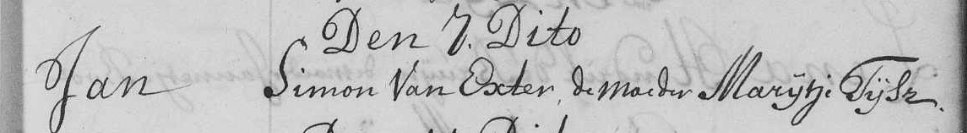 Den 7. Dito
Jan Simon Van Exter, de moeder Marÿtje Tÿsz.